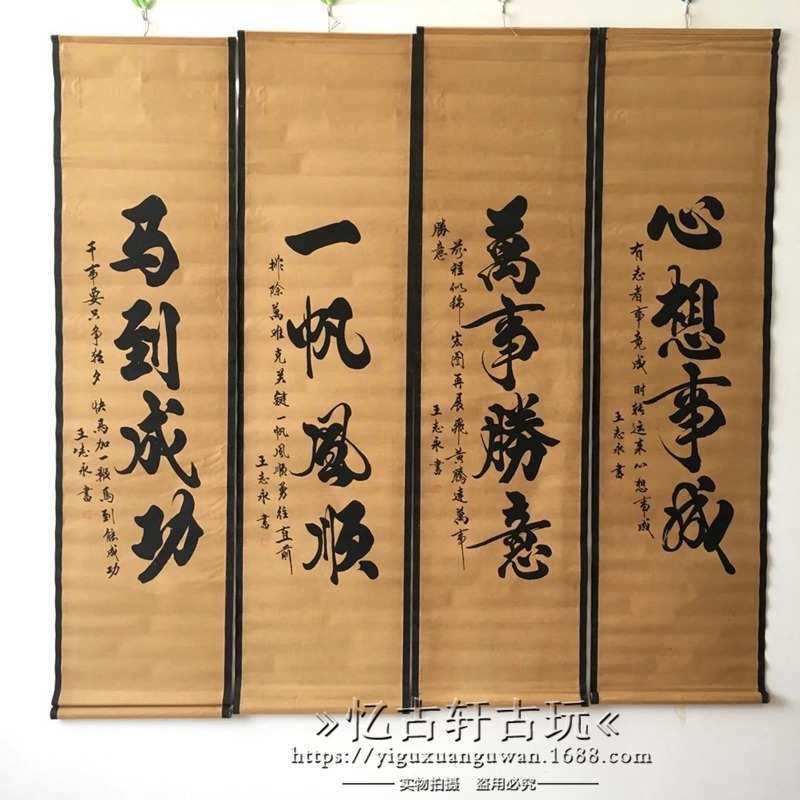 心想事成
有志者事竟成 时转运来心想事成
王志永书
萬事勝意
前程似锦 宏图再展飛黄腾達萬事
勝意
王志永書
一帆風顺
排除萬难克关键一帆風順勇往直前
王志永書
马到成功
千事要只争朝夕 快馬加一鞭馬到能成功
王志永書
»忆古轩古玩«
https://yiguxuanguwan.1688.com
实物拍摄 盗用必究